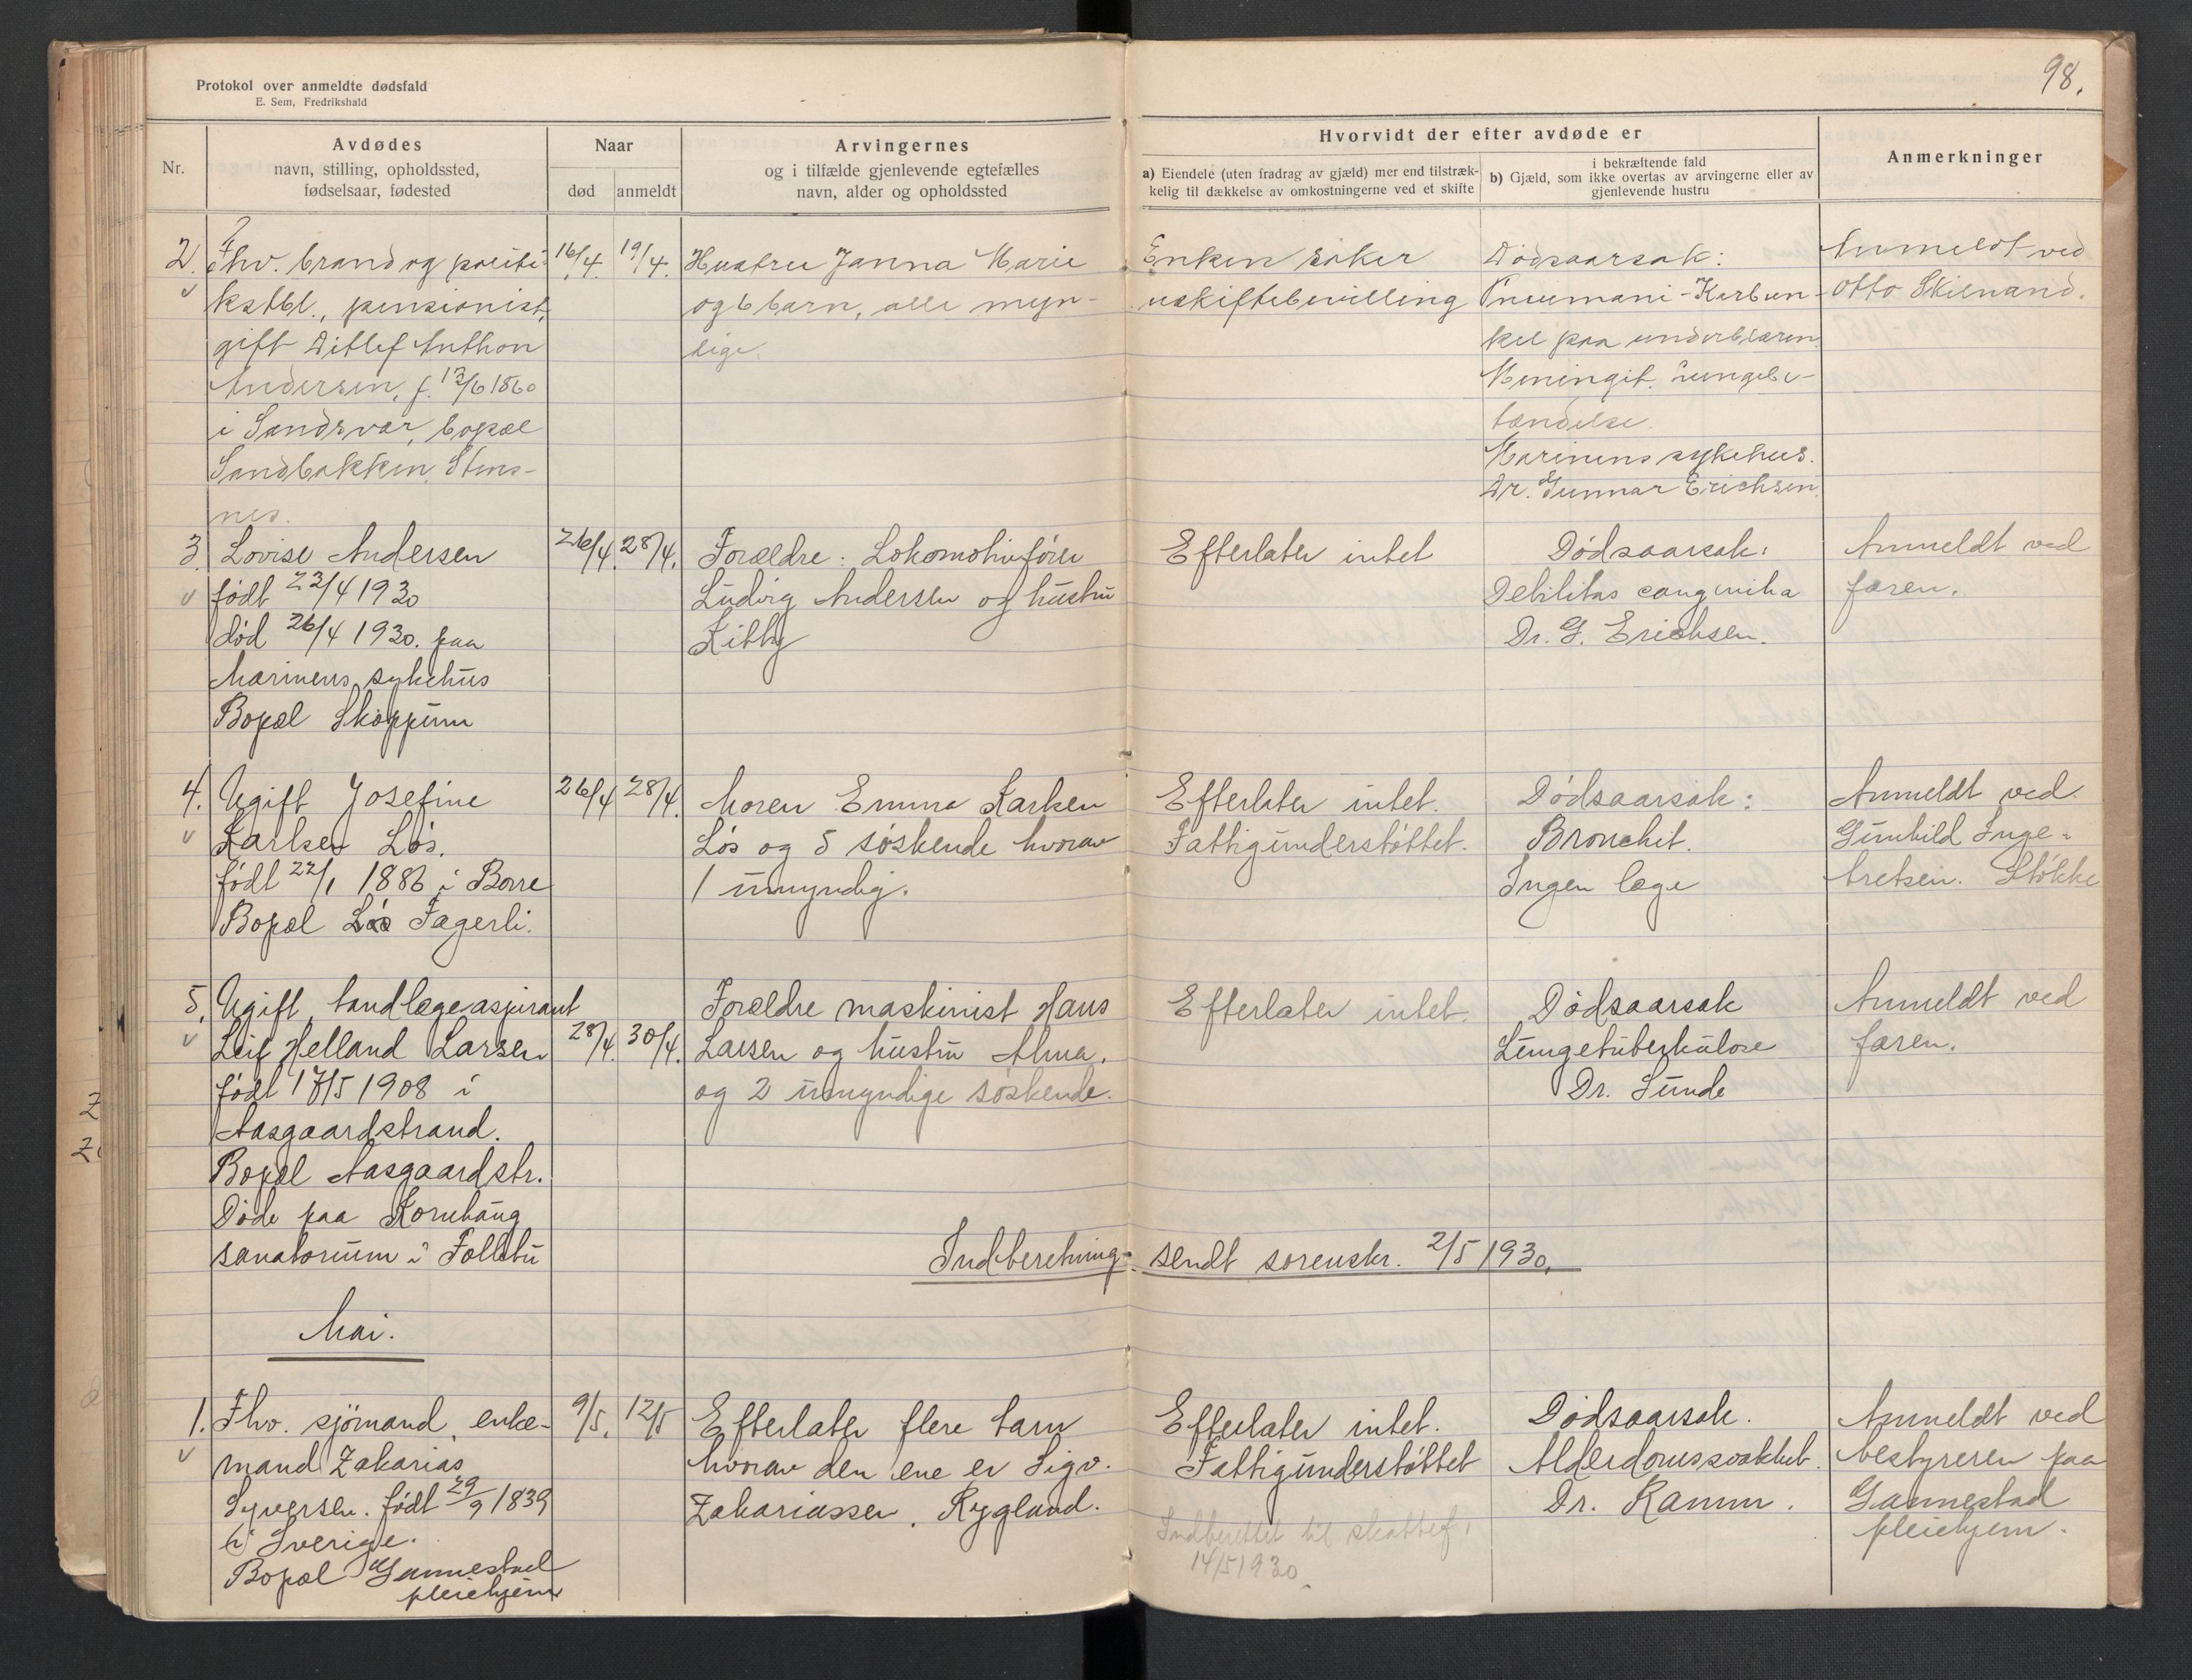 98.
Protokol over anmeldte dødsfald
E. Sem, Fredrikshald
Nr.
Avdødes
navn, stilling, opholdssted,
fødselsaar, fødested
Naar
død
anmeldt
Arvingernes
og i tilfælde gjenlevende egtefælles
navn, alder og opholdssted
Hvorvidt der efter avdøde er
a) Eiendele (uten fradrag av gjæld) mer end tilstræk-
kelig til dækkelse av omkostningerne ved et skifte
i bekræftende fald
b) Gjæld, som ikke overtas av arvingerne eller av
gjenlevende hustru
Anmerkninger
2.
Fhv. brand og politi-
kstbl., pensionist,
gift Ditlef Anthon
Andersen, f. 12/6 1860
i Sandsvær, bopæl
Sandbakken, Stens-
nes.
16/4.
19/4.
Hustru Janna Marie
og 6 barn, alle myn-
dige.
Enken søker
uskiftebevilling
Dødsaarsak:
Pneumoni - Karbun-
kel paa underlæben
Meningit. Lungebe-
tændelse.
Marinens sykehus.
Dr. Gunnar Erichsen.
Anmeldt ved
Otto Skienand.
3.
Lovise Andersen
født 23/4 1930
død 26/4 1930. paa
Marinens sykehus
Bopæl Skoppum
26/4.
28/4.
Forældre: Lokomotivfører
Ludvig Andersen og hustru
Kitty
Efterlater intet
Dødsaarsak:
Debilitas congenita
Dr. G. Erichsen.
Anmeldt ved
faren.
4.
Ugift Josefine
Karlsen Løs.
født 22/1 1886 i Borre
Bopæl Løs Fagerli.
26/4
28/4.
Moren Emma Karlsen
Løs og 5 søskende hvorav
1 umyndig.
Efterlater intet.
Fattigunderstøttet.
Dødsaarsak:
Bronchit.
Ingen læge
Anmeldt ved
Gunhild Inge-
bretsen. Stokke
5.
Ugift tandlægeaspirant
Leif Helland Larsen
født 17/5 1908 i
Aasgaardstrand.
Bopæl Aasgaardstr.
Døde paa Kornhaug
sanatorium i Follebu
28/4.
30/4.
Forældre maskinist Hans
Larsen og hustru Alma.
og 2 umyndige søskende.
Efterlater intet.
Dødsaarsak
Lungetuberkulose
Dr. Lunde
Anmeldt ved
faren.
Indberetning sendt sorenskr. 2/5 1930.
Mai.
1.
Fhv. sjömand, enke-
mand Zakarias
Syversen. født 29/9 1839
i Sverige.
Bopæl Gannestad
pleiehjem
9/5.
12/5
Efterlater flere barn
hvorav den ene er Sigv.
Zakariassen, Rygland.
Efterlater intet.
Fattigunderstøttet
Indberettet til skattef.
14/5 1930.
Dødsaarsak.
Alderdomssvakhet.
Dr. Ramm.
Anmeldt ved
bestyreren paa
Gannestad
pleiehjem.